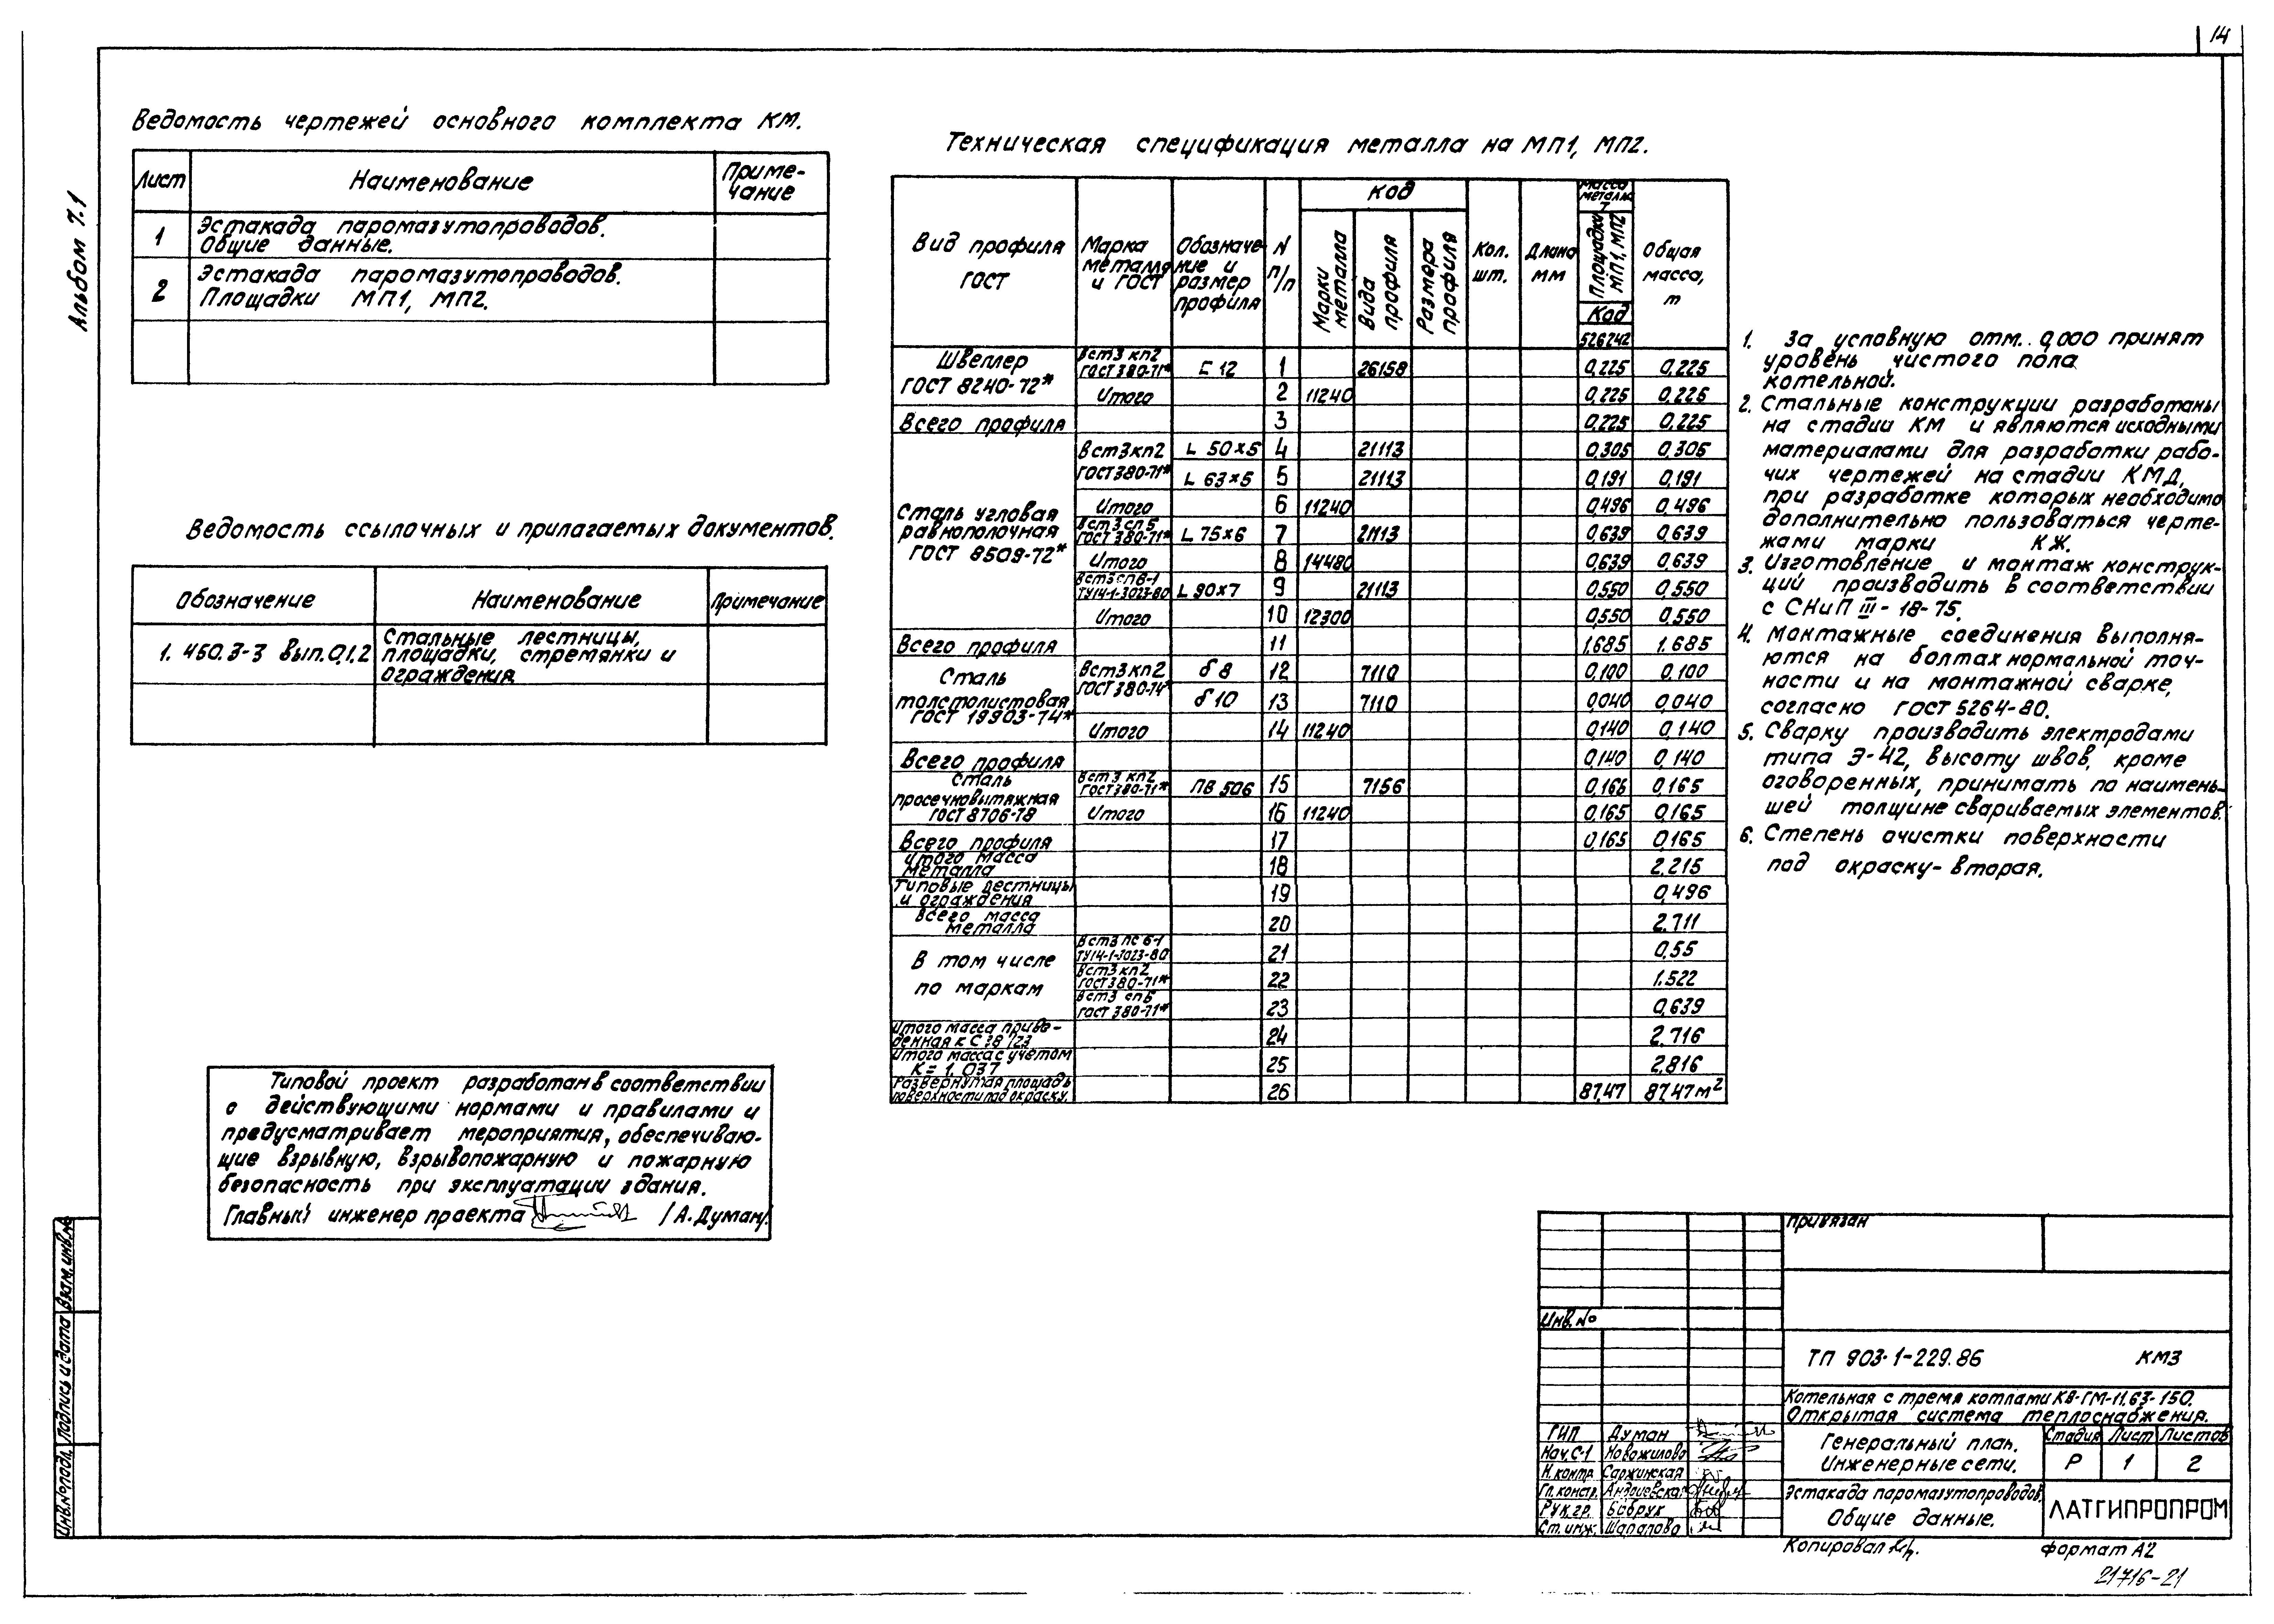 14
Альбом 7.1
Ведомость чертежей основного комплекта КМ.
Лист Наименование Приме-
чание
1 Эстакада паромазутопроводов.
Общие данные.
2 Эстакада паромазутопроводов.
Площадки МП1, МП2.
Ведомость ссылочных и прилагаемых документов.
Обозначение Наименование Примечание
1. 450.3-3 Вып.0,1,2 Стальные лестницы,
площадки, стремянки и
ограждения
Типовой проект разработан в соответствии
с действующими нормами и правилами и
предусматривает мероприятия, обеспечиваю-
щие взрывную, взрывопожарную и пожарную
безопасность при эксплуатации здания.
Главный инженер проекта /А.Думан/.
Техническая спецификация металла на МП1, МП2.
Вид профиля
ГОСТ
Марка
металла
и ГОСТ
Обозначе-
ние и
размер
профиля
N
п/п
Код
Марки
металла
Вида
профиля
Размера
профиля
Кол.
шт.
Длина
мм
Масса
металла
т
Площадки
МП1, МП2
Код
526242
Общая
масса,
т
Швеллер
ГОСТ 8240-72*
Вст3 кп2
ГОСТ 380-71* [ 12 1 26158 0,225 0,225
Итого 2 11240 0,225 0,225
Всего профиля 3 0,225 0,225
Сталь угловая
равнополочная
ГОСТ 8509-72*
Вст3кп2 L 50×5 4 21113 0,305 0,305
ГОСТ380-71* L 63×5 5 21113 0,191 0,191
Итого 6 11240 0,496 0,496
Вст3 сп5
ГОСТ 380-71* L 75×6 7 21113 0,639 0,639
Итого 8 14480 0,639 0,639
Вст3сп6-1
ТУ14-1-3023-80 L 90×7 9 21113 0,550 0,550
Итого 10 12300 0,550 0,550
Всего профиля 11 1.685 1.685
Сталь
толстолистовая
ГОСТ 19903-74*
Вст3кп2 δ 8 12 7110 0,100 0,100
ГОСТ380-74* δ 10 13 7110 0,040 0,040
Итого 14 11240 0,140 0,140
Всего профиля 0,140 0,140
Сталь
просечновытяжная
ГОСТ 8706-78
Вст3 кп2
ГОСТ380-71* ПВ 506 15 7156 0,165 0,165
Итого 16 11240 0,165 0,165
Всего профиля 17 0,165 0,165
Итого масса
металла 18 2.215
Типовые лестницы
и ограждения 19 0,496
Всего масса
металла 20 2.711
В том числе
по маркам
Вст3 пс 6-1
ТУ14-1-3023-80 21 0,55
Вст3 кп2
ГОСТ380-71* 22 1.522
Вст3 сп5
ГОСТ 380-71* 23 0,639
Итого масса приве-
денная к С 38/23 24 2.716
Итого масса с учетом
К=1.037 25 2,816
Развернутая площадь
поверхности под окраску. 26 87,47 87,47 м²
1. За условную отм. 0,000 принят
уровень чистого пола
котельной.
2. Стальные конструкции разработаны
на стадии КМ и являются исходными
материалами для разработки рабо-
чих чертежей на стадии КМД,
при разработке которых необходимо
дополнительно пользоваться черте-
жами марки КЖ.
3. Изготовление и монтаж конструк-
ций производить в соответствии
с СНиП III-18-75.
4. Монтажные соединения выполня-
ются на болтах нормальной точ-
ности и на монтажной сварке,
согласно ГОСТ 5264-80.
5. Сварку производить электродами
типа Э-42, высоту швов, кроме
оговоренных, принимать по наимень-
шей толщине свариваемых элементов.
6. Степень очистки поверхности
под окраску-вторая.
Взам.инв.№
Подпись и дата
Инв.№подл.
Привязан
Инв.№
ТП 903-1-229.86 КМ3
Котельная с тремя котлами КВ-ГМ-11.63-150.
Открытая система теплоснабжения.
ГИП Думан
Нач.С-1 Новожилова
Н.контр. Саржинская
Гл.констр. Андриевская
Рук.гр. Бобрук
Ст.инж. Шарапова
Генеральный план.
Инженерные сети.
Стадия Лист Листов
Р 1 2
Эстакада паромазутопроводов.
Общие данные.
ЛАТГИПРОПРОМ
Копировал формат А2
21716-21